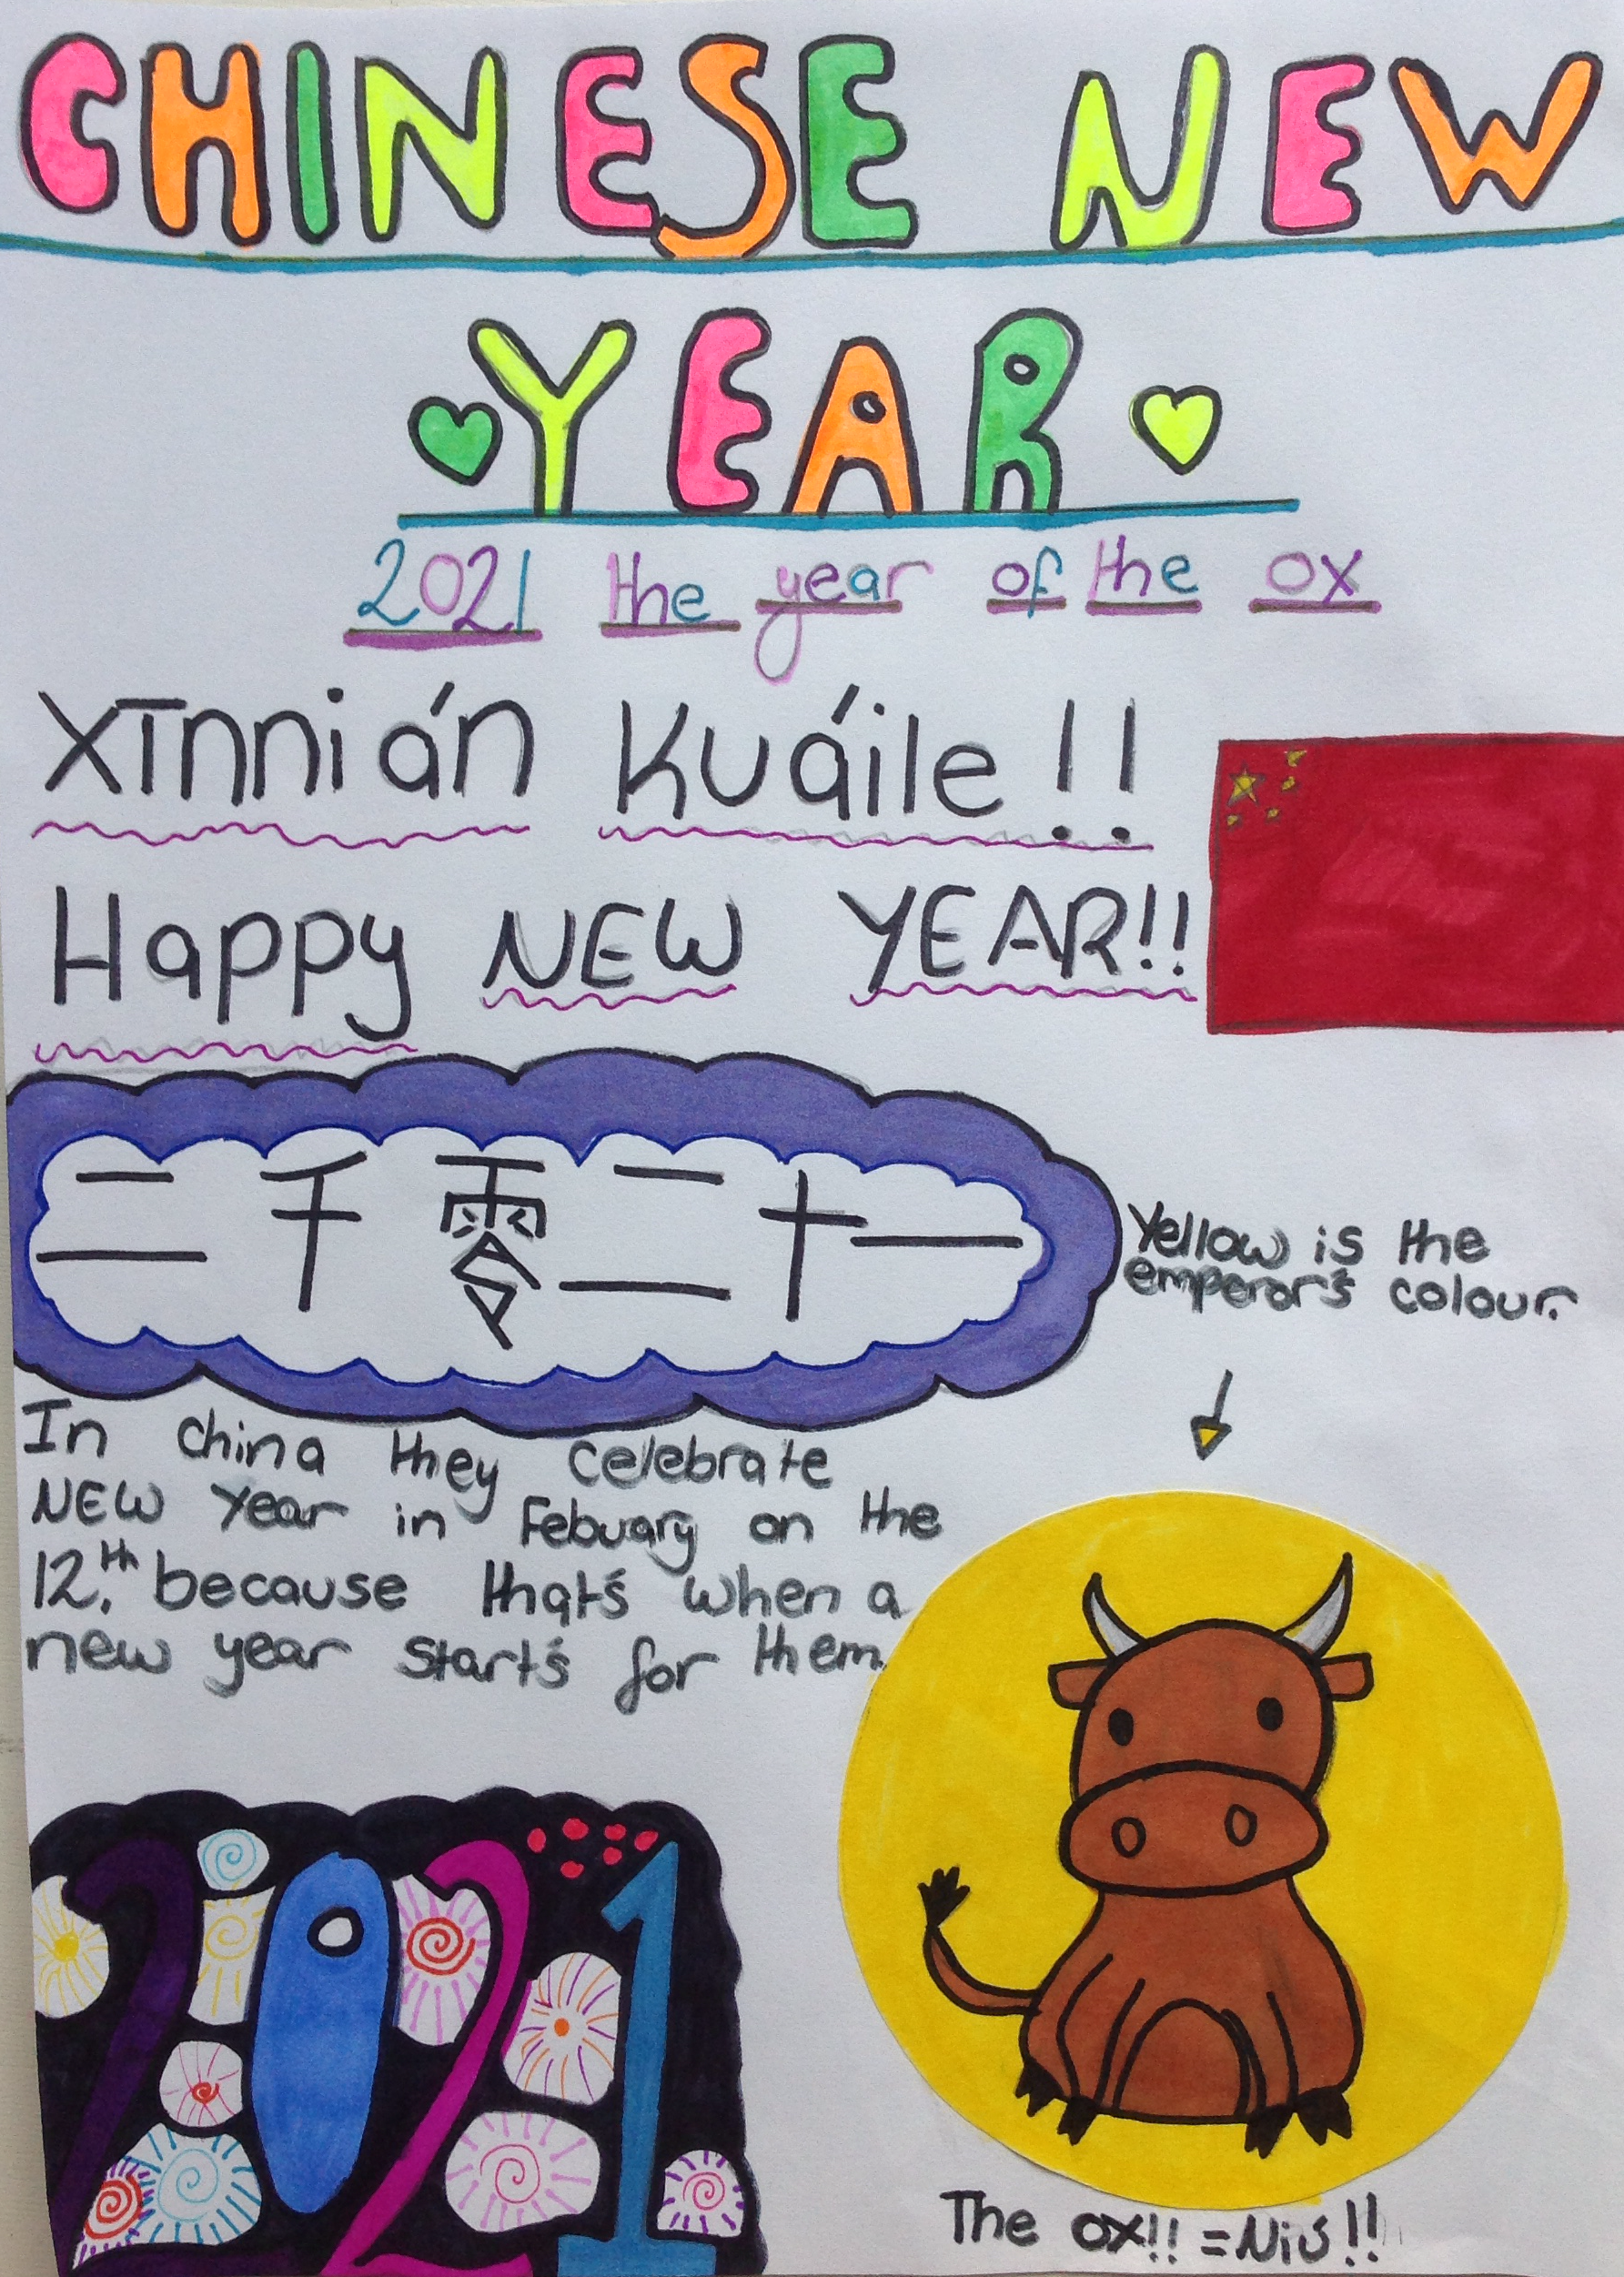 CHINESE NEW
YEAR
2021 the year of the ox
Xīnnián Kuáile!!
Happy NEW YEAR!!
二千零二十一
Yellow is the
emperor's colour.
In china they celebrate
NEW Year in Febuary on the
12.th because that's when a
new year start's for them.
2021
The ox!! = Niú!!